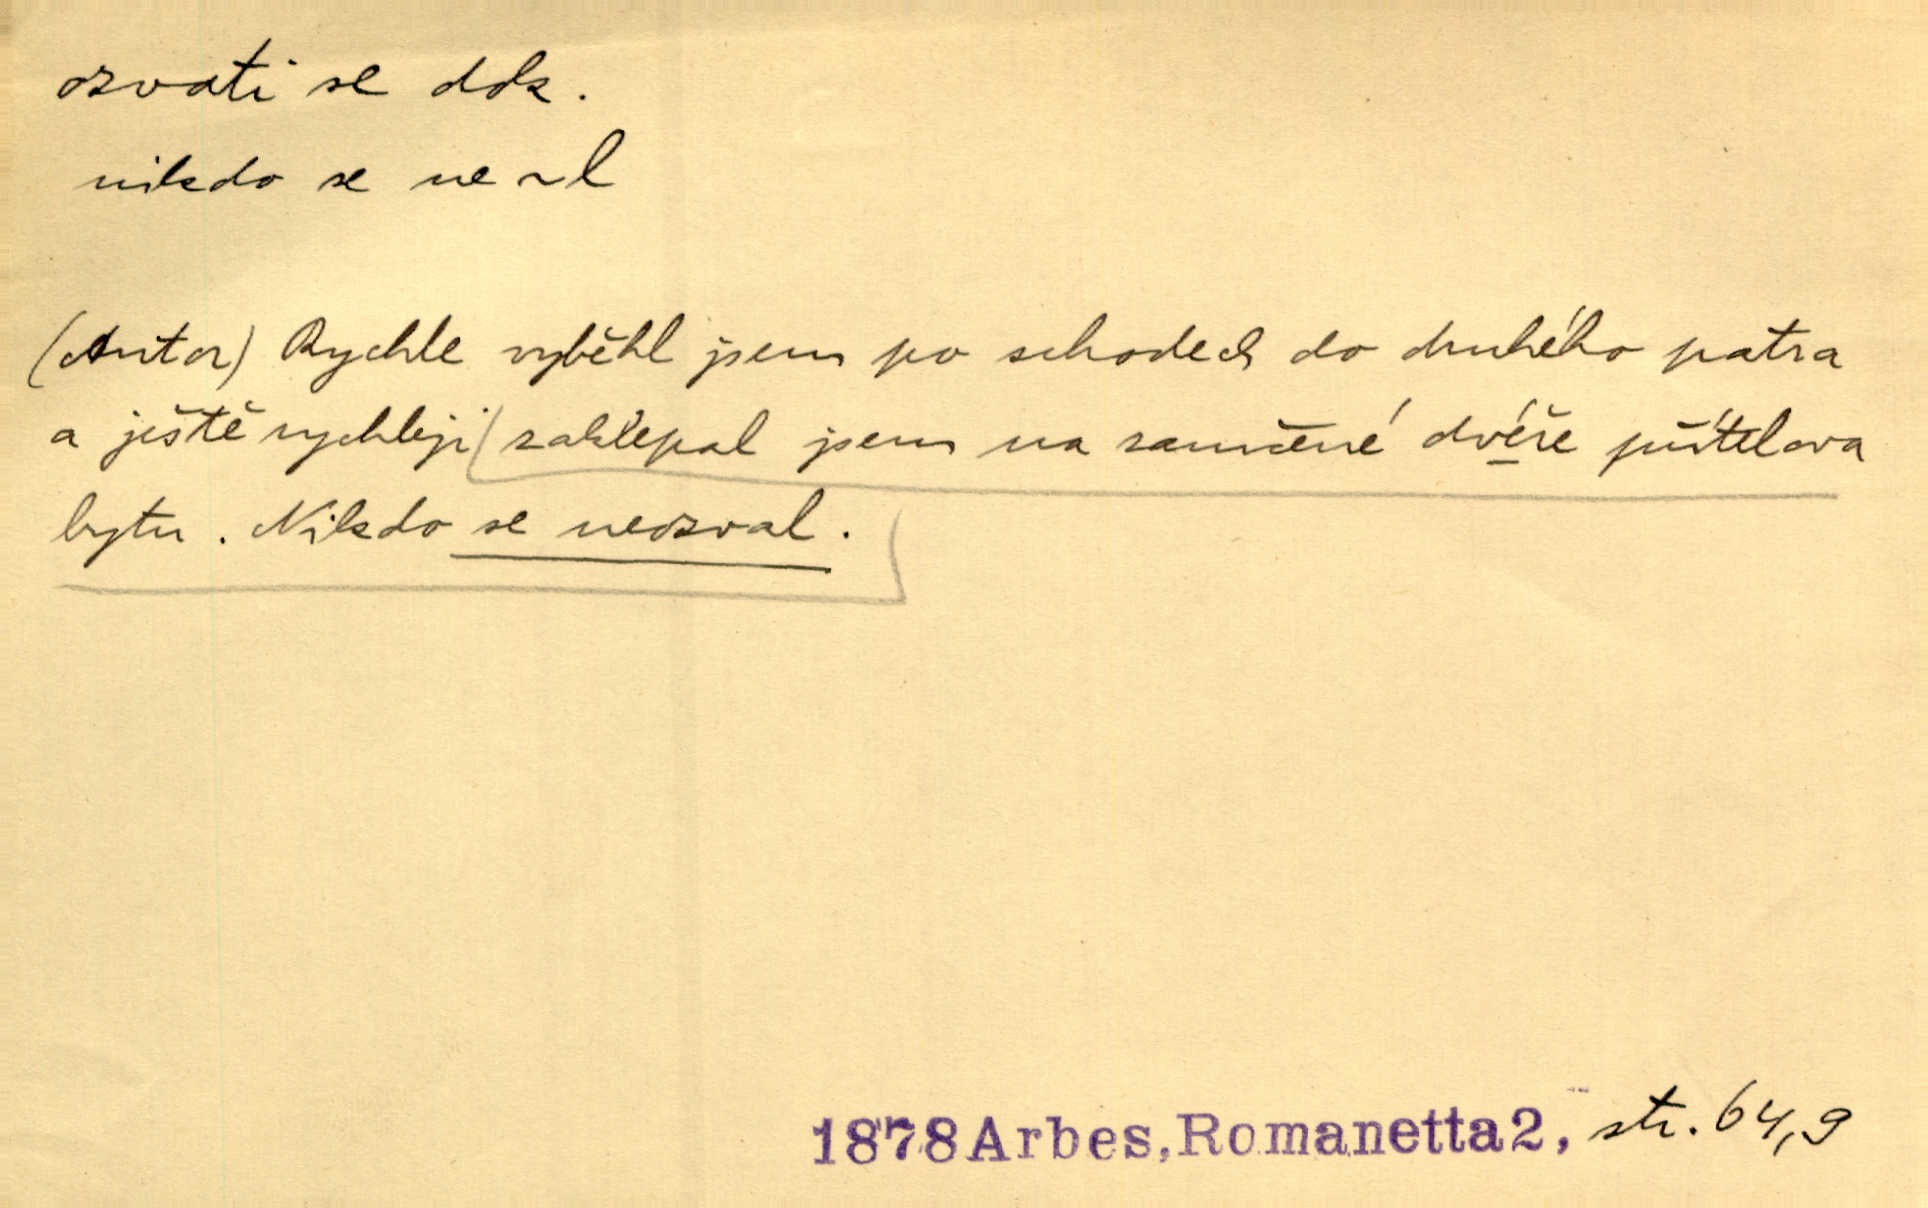 ozvati se dok.
nikdo se ne~l
(Autor) Rychle vyběhl jsem po schodech do druhého patra
a ještě rychleji zaklepal jsem na zamčené dvéře přítelova
bytu. Nikdo se neozval.
1878 Arbes, Romanetta 2, str. 64,9